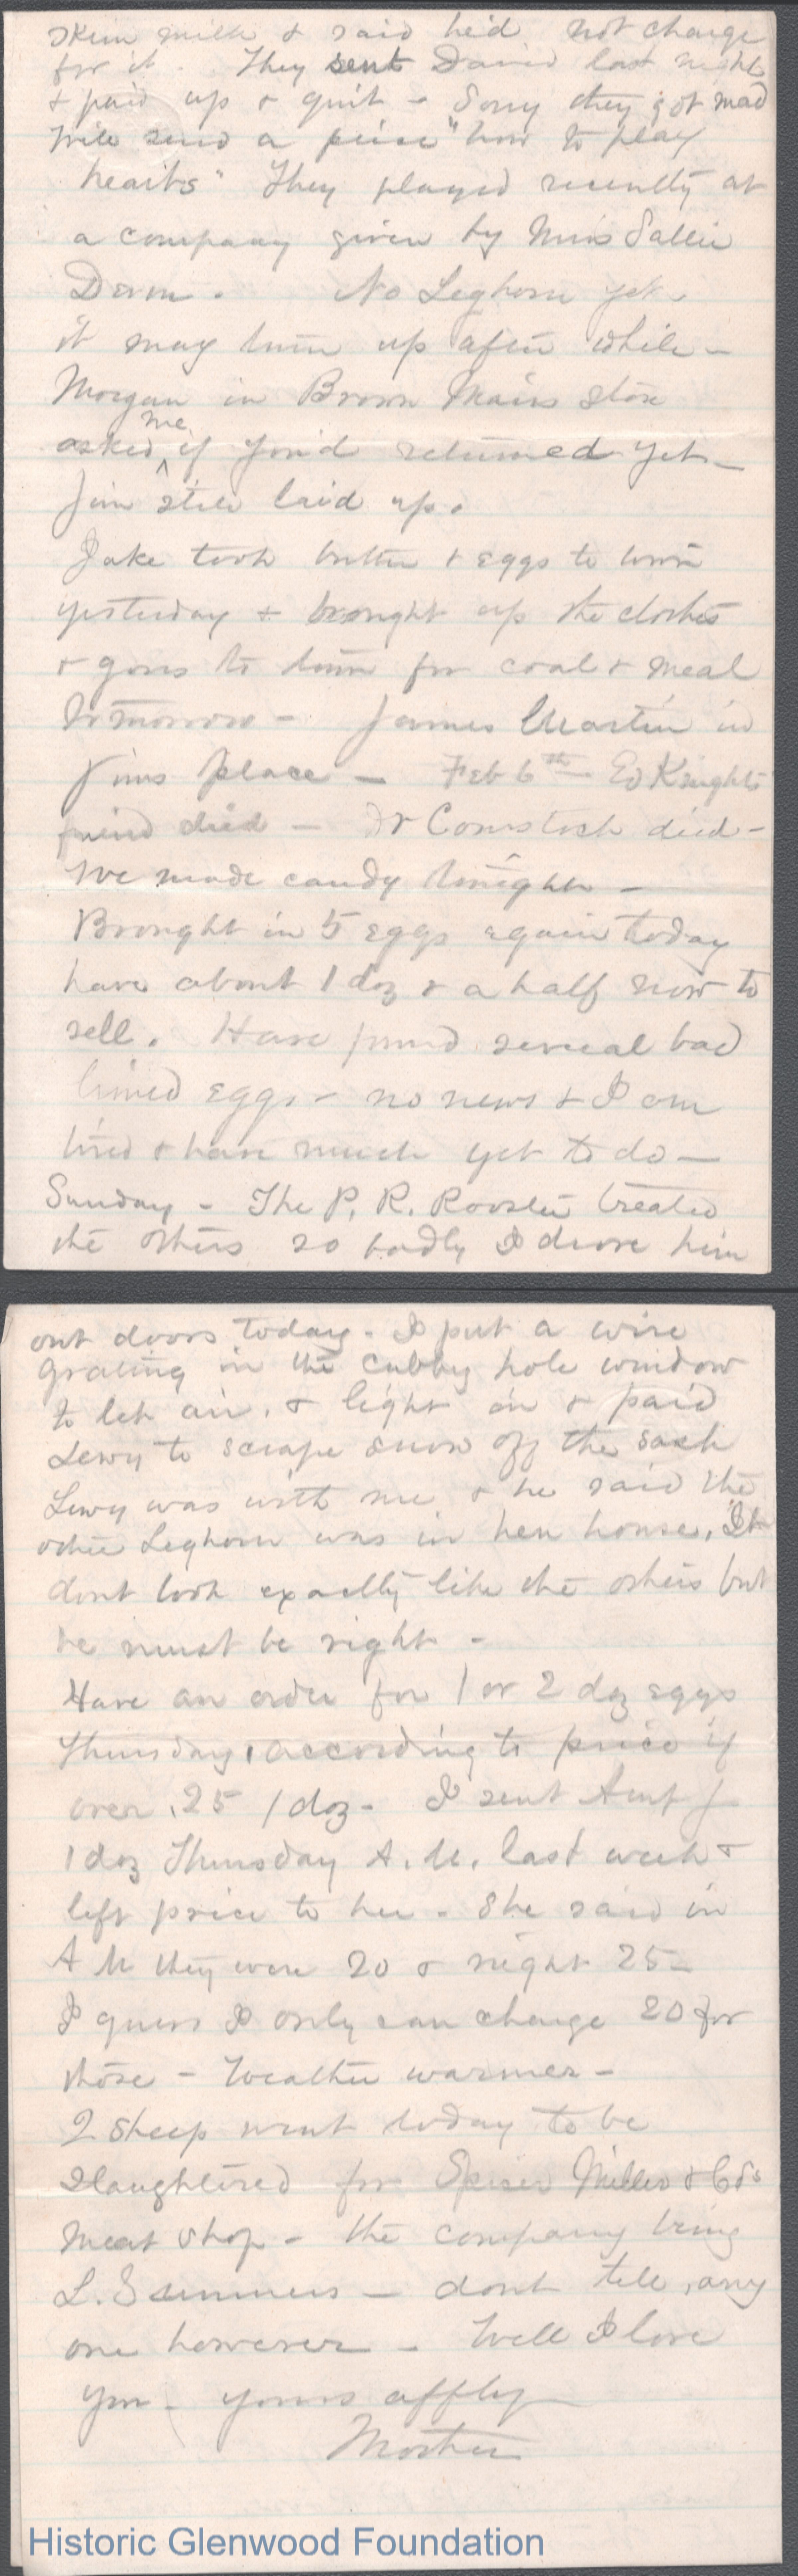 skim milk & said he'd not charge
for it. They sent David last night
& paid up & quit - Sorry they got mad
Will send a peice "how to play
hearts" They played recently at
a company given by Miss Sallie
No Leghorn yet.
it may turn up after while -
Morgan in Brown store
asked me if you'd returned yet -
Jim still laid up.
Jake took butter & eggs to town
yesterday & brought up the clothes
& goes to town for coal & meal
tomorrow - James Martin in
Jims place - Feb 6th - Ed Knights
friend died - Dr Comstock died -
We made candy tonight -
Brought in 5 eggs again today
have about 1 doz & a half now to
sell. Have found several bad
limed eggs - no news & I am
tired & have much yet to do -
Sunday - The P. R. Rooster treated
the others so badly I drove him
out doors today - I put a wire
grating in the cubby hole window
to let air, & light in & paid
Lewy to scrape snow off the sash
Lewy was with me & he said the
other Leghorn was in hen house, It
dont look exactly like the others but
he must be right -
Have an order for 1 or 2 doz eggs
Thursday, according to price if
over .25 1 doz - I sent Aunt J
1 doz Thursday A.M. last week &
left price to her - She said in
A M they were 20 & night 25 -
I guess I only can charge 20 for
those - Weather warmer -
2 Sheep went today to be
slaughtered for Spicer Miller & Co's
Meat shop - the company being
L. Summers - dont tell any
one however - Well I love
you - yours affly
Mother
Historic Glenwood Foundation